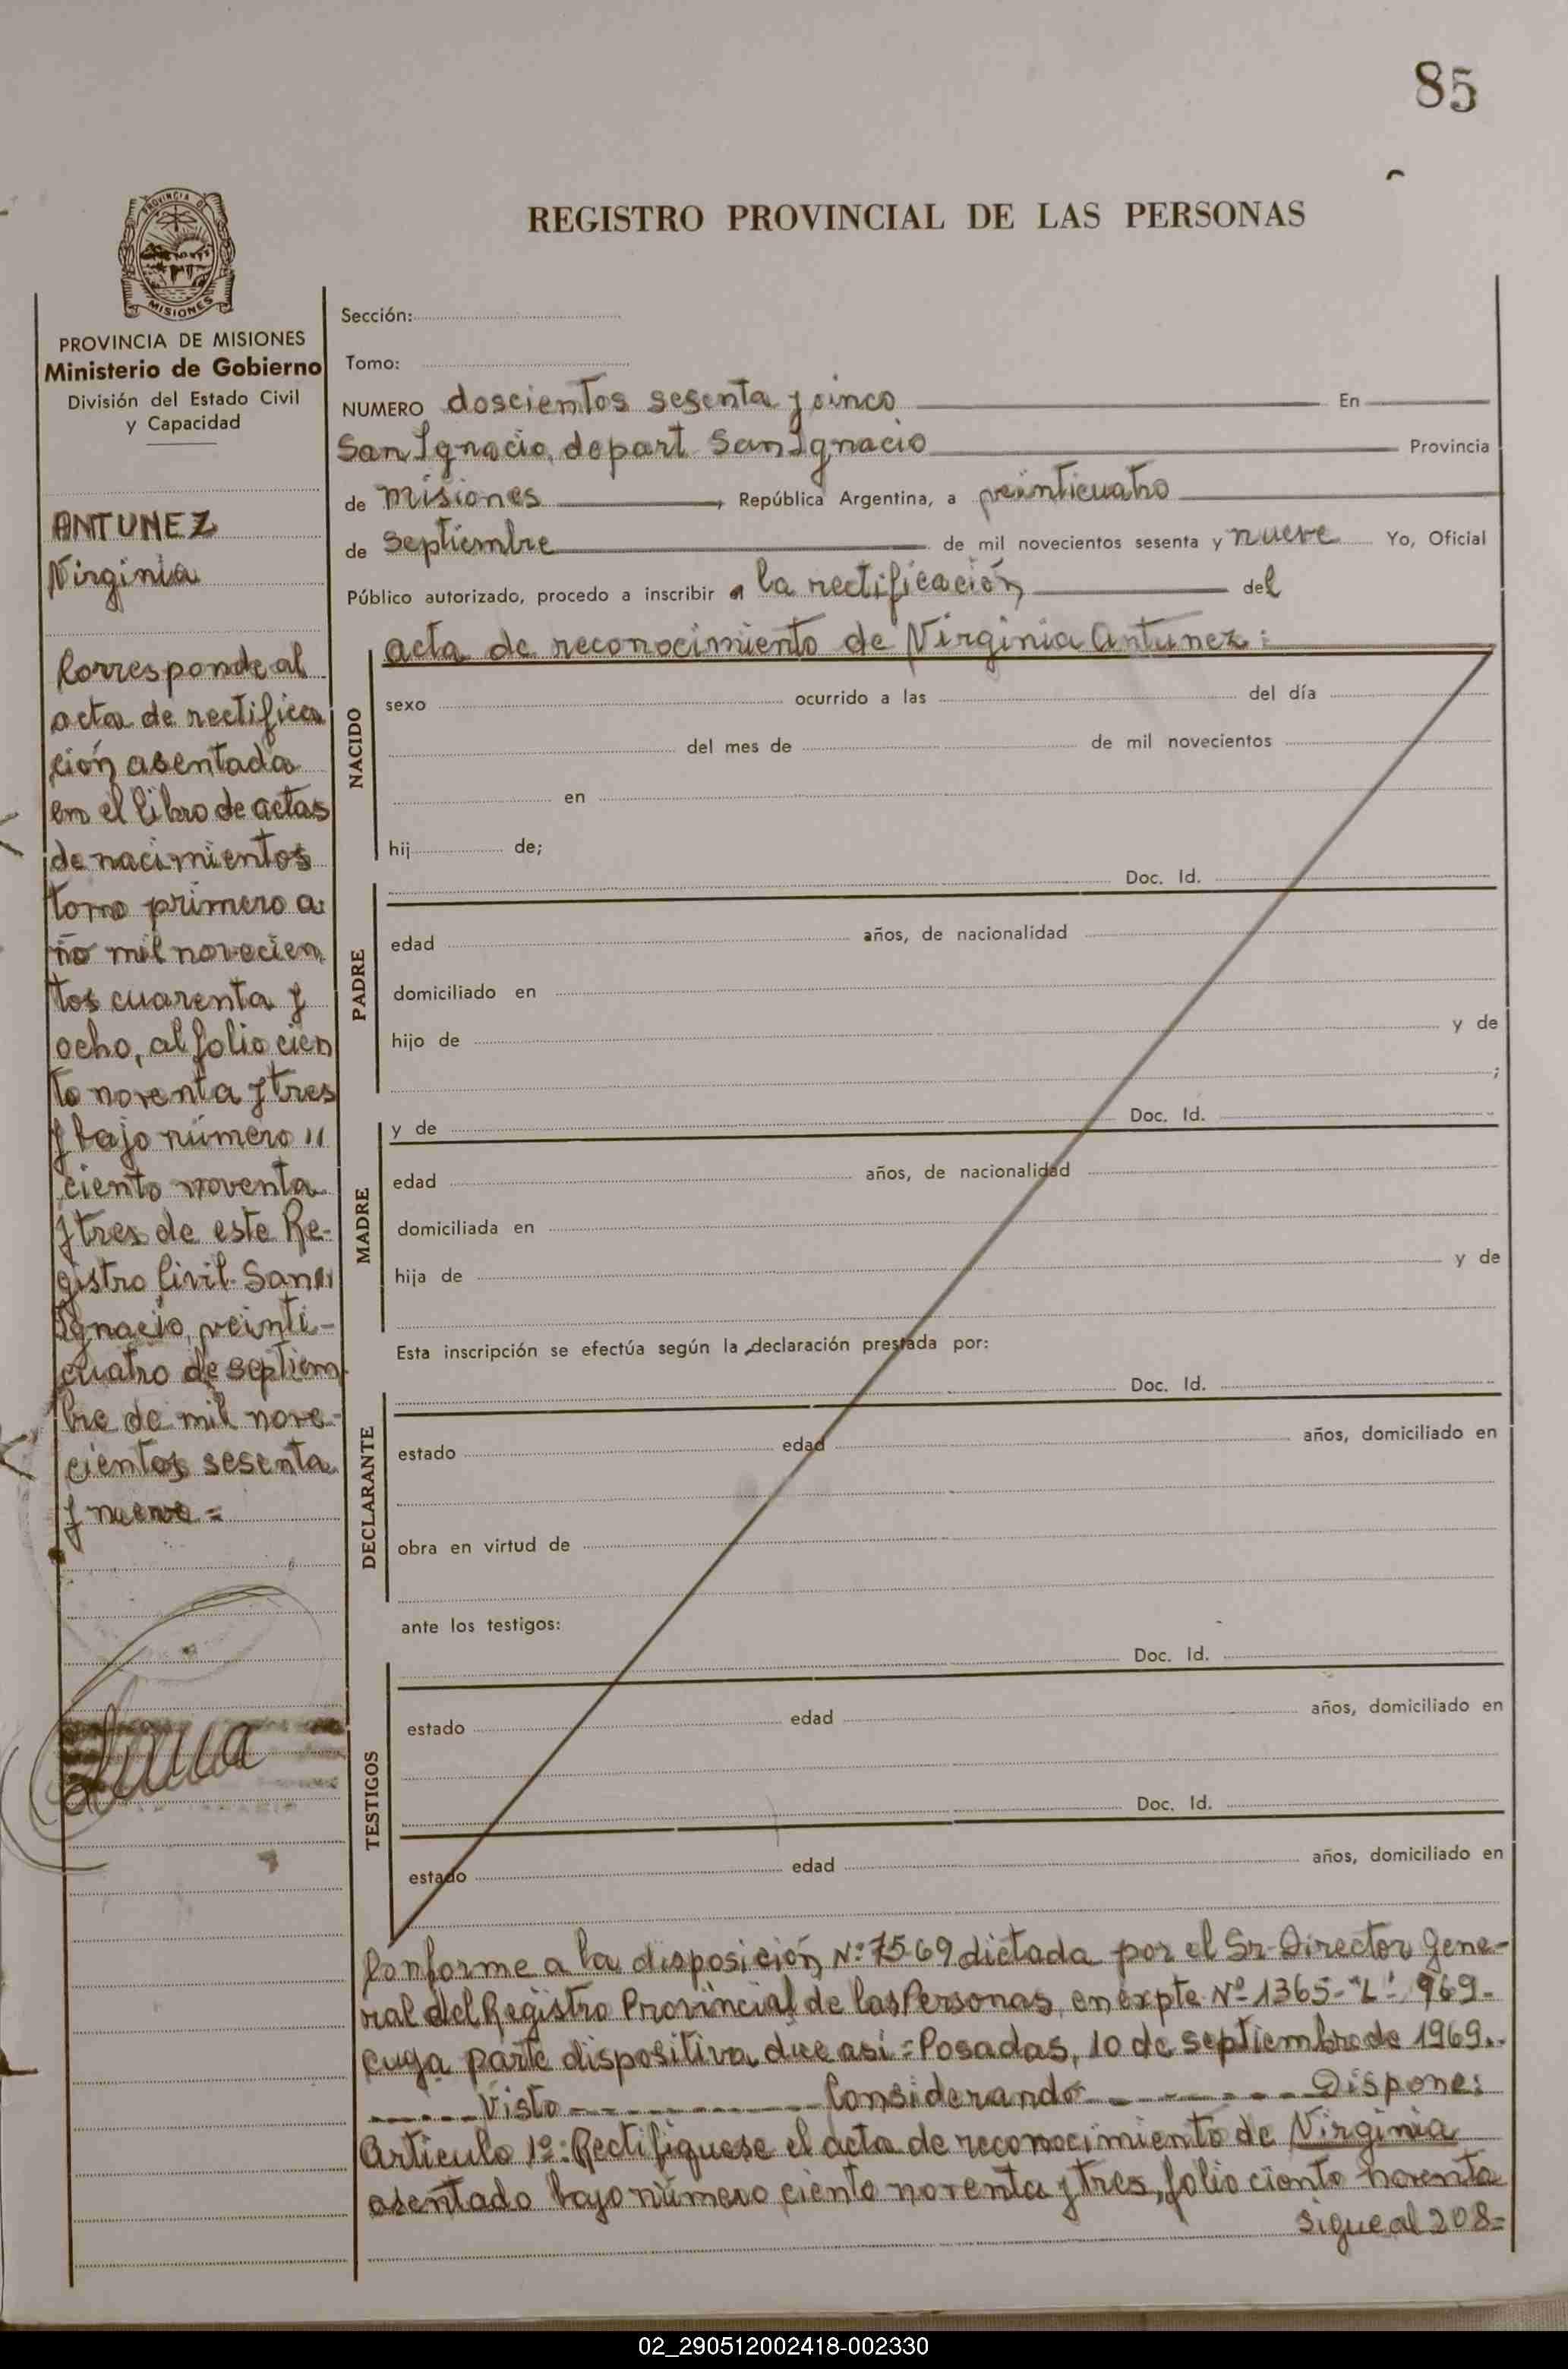 85
REGISTRO PROVINCIAL DE LAS PERSONAS
PROVINCIA DE
MISIONES
PROVINCIA DE MISIONES
Ministerio de Gobierno
División del Estado Civil
y Capacidad
ANTUNEZ
Virginia
Corresponde al
acta de rectifica
ción asentada
en el libro de actas
de nacimientos
tomo primero a
ño mil novecien
tos cuarenta y
ocho, al folio cien
to noventa y tres
y bajo número "
ciento noventa
y tres de este Re-
gistro Civil. San
Ignacio, veinti-
cuatro de septiem
bre de mil nove-
cientos sesenta
y nueve =
Sección:
Tomo:
NUMERO doscientos sesenta y cinco En
San Ignacio, depart San Ignacio Provincia
de Misiones, República Argentina, a veinticuatro
de Septiembre de mil novecientos sesenta y nueve Yo, Oficial
Público autorizado, procedo a inscribir a la rectificación del
acta de reconocimiento de Virginia Antunez:
NACIDO
sexo ocurrido a las del día
del mes de de mil novecientos
en
hij de;
Doc. Id.
PADRE
edad años, de nacionalidad
domiciliado en
hijo de y de
;
y de Doc. Id.
MADRE
edad años, de nacionalidad
domiciliada en
hija de y de
Esta inscripción se efectúa según la declaración prestada por:
Doc. Id.
DECLARANTE
estado edad años, domiciliado en
obra en virtud de
ante los testigos:
Doc. Id.
TESTIGOS
estado edad años, domiciliado en
Doc. Id.
estado edad años, domiciliado en
Conforme a la disposición Nº 7569 dictada por el Sr. Director Gene-
ral del Registro Provincial de las Personas, en expte Nº 1365-"L"-969-
cuya parte dispositiva dice así = Posadas, 10 de septiembre de 1969..
------Visto------------Considerando----------Dispone:
Artículo 1º: Rectifiquese el acta de reconocimiento de Virginia
asentado bajo número ciento noventa y tres, folio ciento noventa
sigue al 208=
02_290512002418-002330